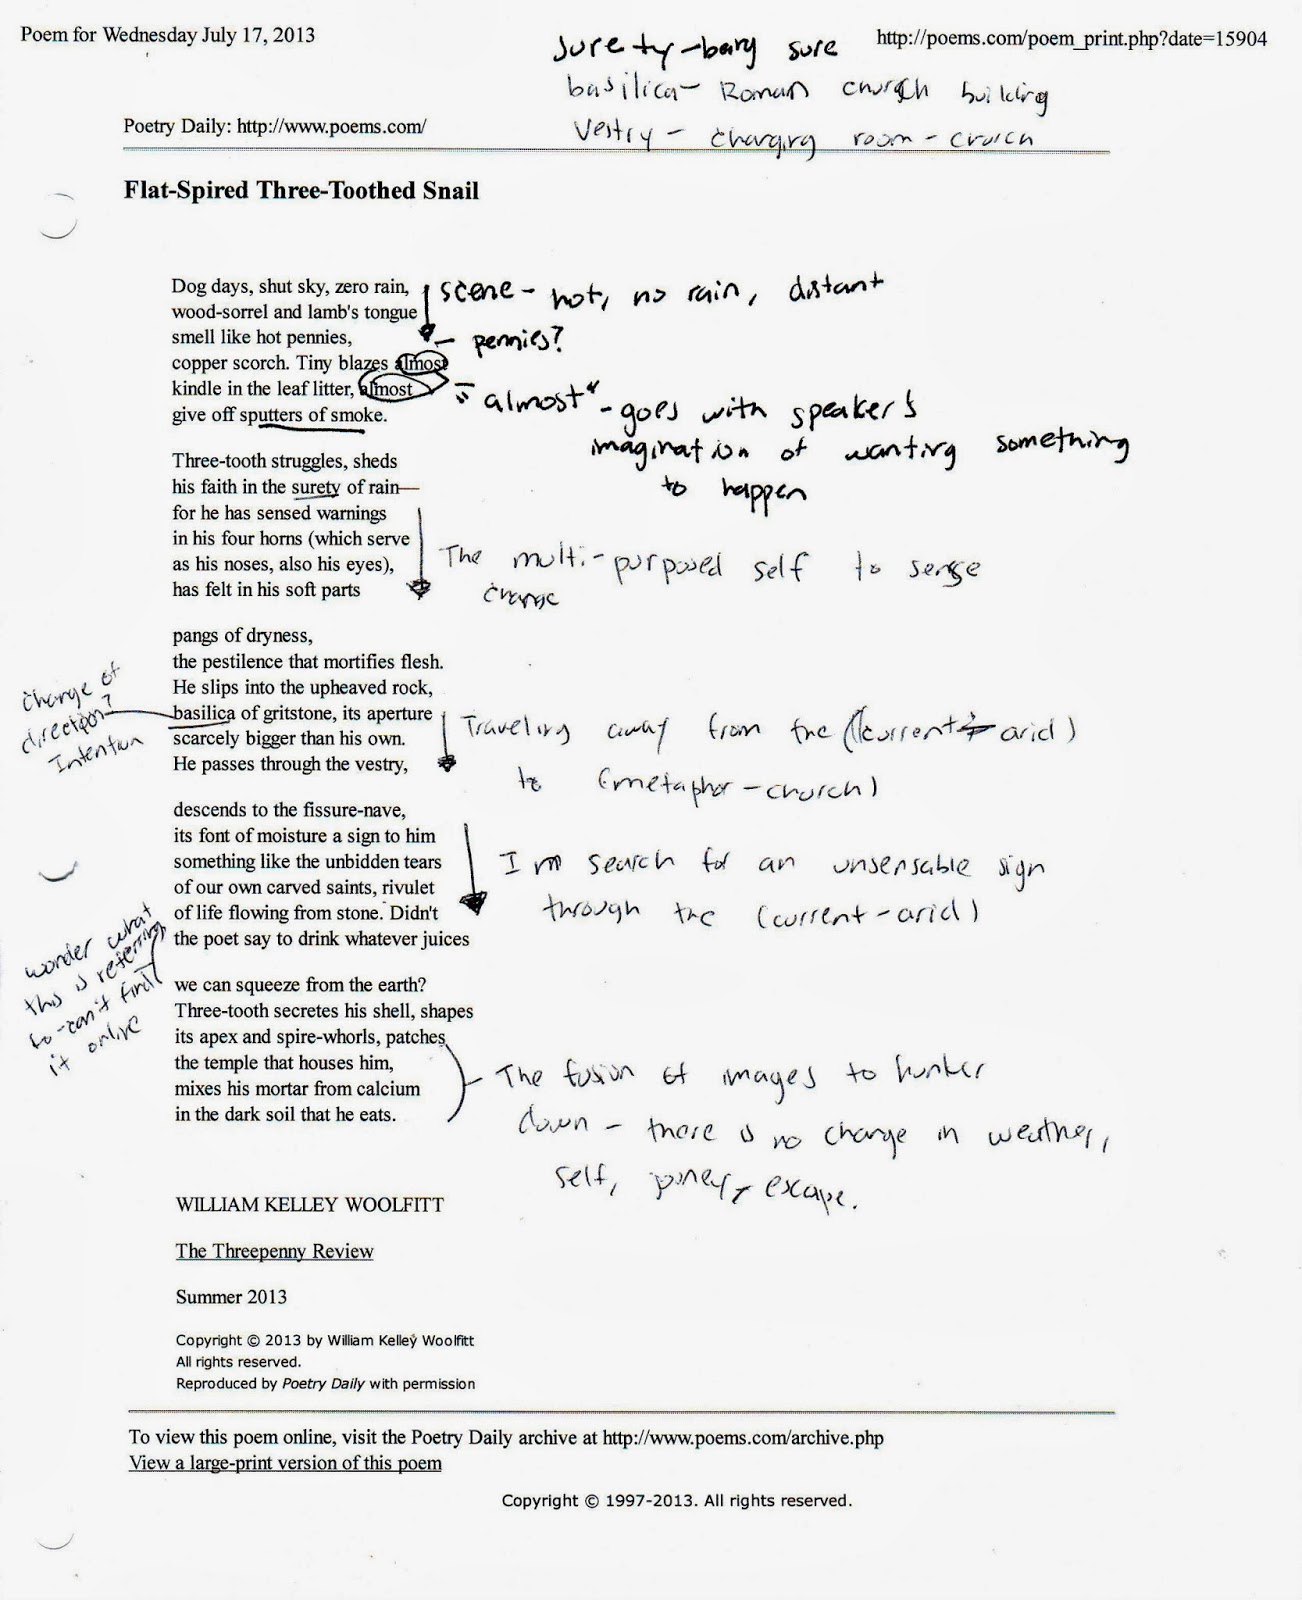 Poem for Wednesday July 17, 2013
http://poems.com/poem_print.php?date=15904
surety - being sure
basilica - Roman church building
vestry - changing room - church
Poetry Daily: http://www.poems.com/
Flat-Spired Three-Toothed Snail
Dog days, shut sky, zero rain,
wood-sorrel and lamb's tongue
smell like hot pennies,
copper scorch. Tiny blazes almost
kindle in the leaf litter, almost
give off sputters of smoke.
scene - hot, no rain, distant
- pennies?
"almost" - goes with speaker's
imagination of wanting something
to happen
Three-tooth struggles, sheds
his faith in the surety of rain—
for he has sensed warnings
in his four horns (which serve
as his noses, also his eyes),
has felt in his soft parts
The multi-purposed self to sense
change
pangs of dryness,
the pestilence that mortifies flesh.
He slips into the upheaved rock,
basilica of gritstone, its aperture
scarcely bigger than his own.
He passes through the vestry,
change of
direction?
Intention
Traveling away from the (current - arid)
to (metaphor - church)
descends to the fissure-nave,
its font of moisture a sign to him
something like the unbidden tears
of our own carved saints, rivulet
of life flowing from stone. Didn't
the poet say to drink whatever juices
I'm search for an unsensable sign
through the (current - arid)
wonder what
this is referring
to - can't find
it online
we can squeeze from the earth?
Three-tooth secretes his shell, shapes
its apex and spire-whorls, patches
the temple that houses him,
mixes his mortar from calcium
in the dark soil that he eats.
The fusion of images to hunker
down - there is no change in weather,
self, journey, escape.
WILLIAM KELLEY WOOLFITT
The Threepenny Review
Summer 2013
Copyright © 2013 by William Kelley Woolfitt
All rights reserved.
Reproduced by Poetry Daily with permission
To view this poem online, visit the Poetry Daily archive at http://www.poems.com/archive.php
View a large-print version of this poem
Copyright © 1997-2013. All rights reserved.